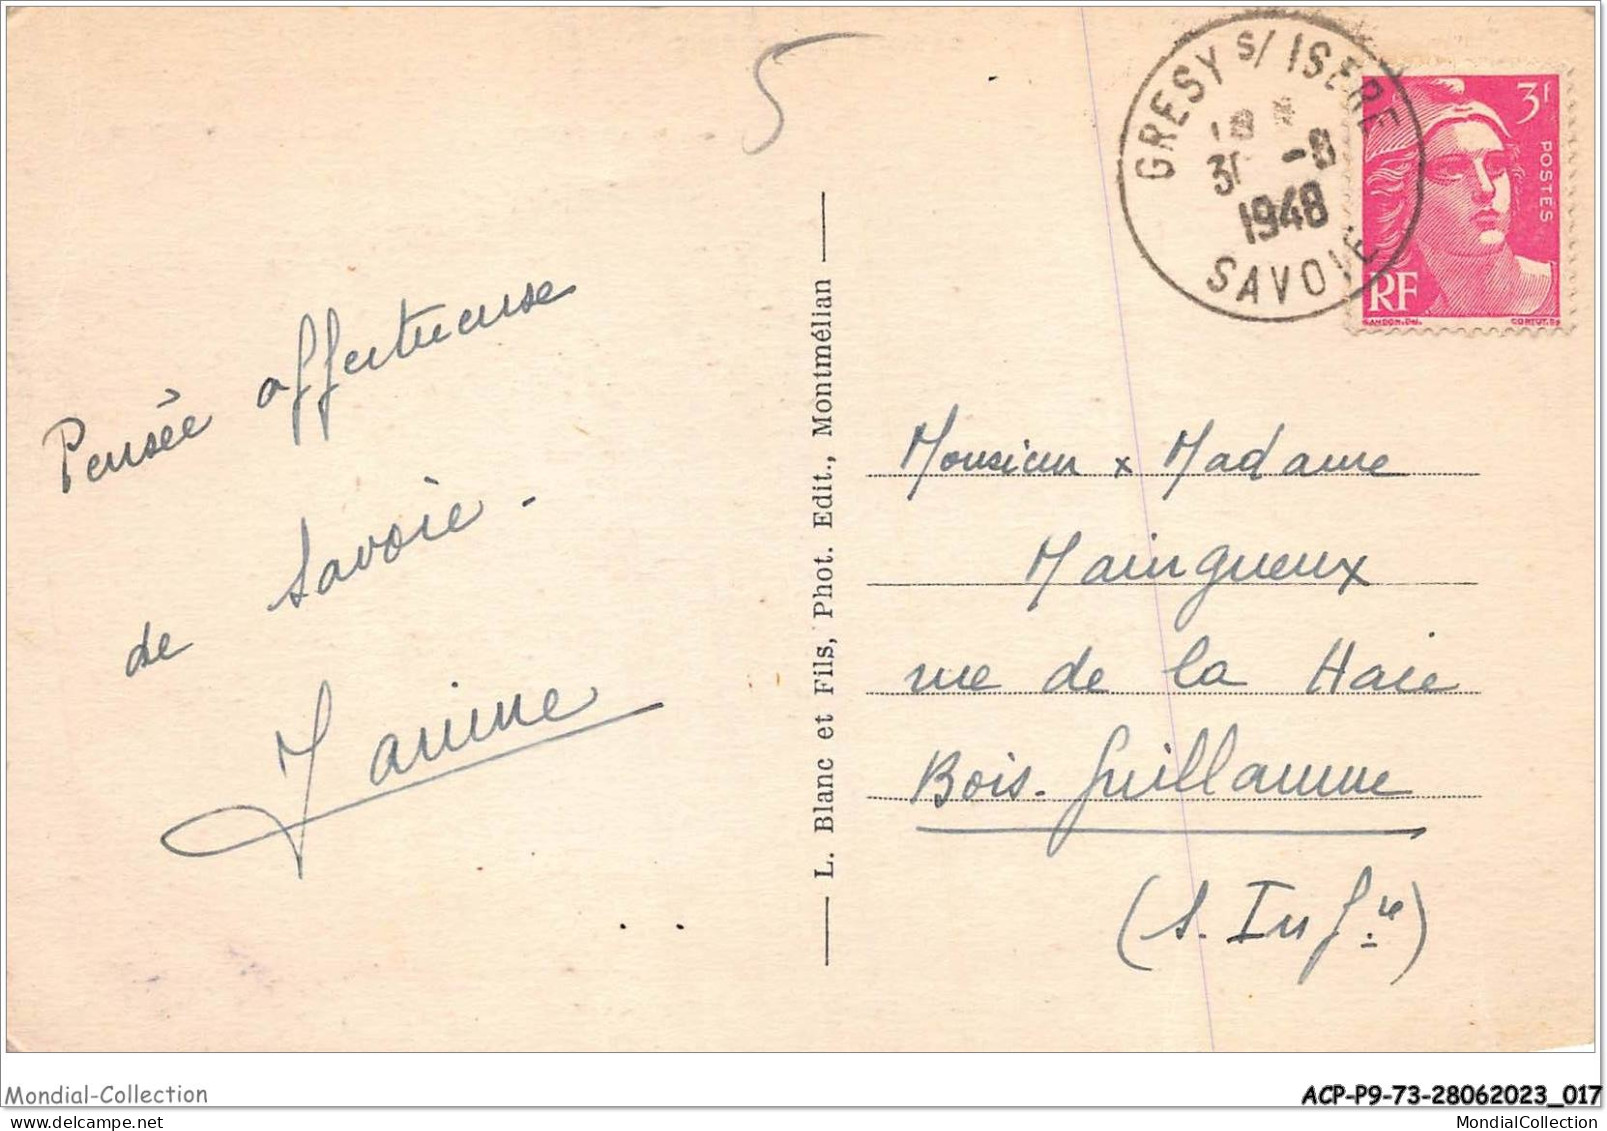 5
GRESY S/ ISERE
18
31 -8
1948
SAVOIE
3f
POSTES
RF
GANDON.Del. CORTOT.Sc
Pensée affectueuse
de Savoie -
Janine
L. Blanc et Fils, Phot. Edit., Montmélian
Monsieur x Madame
Maingueux
rue de la Haie
Bois-Guillaume
(S. Infre)
Mondial-Collection
ACP-P9-73-28062023_017
www.delcampe.net
MondialCollection